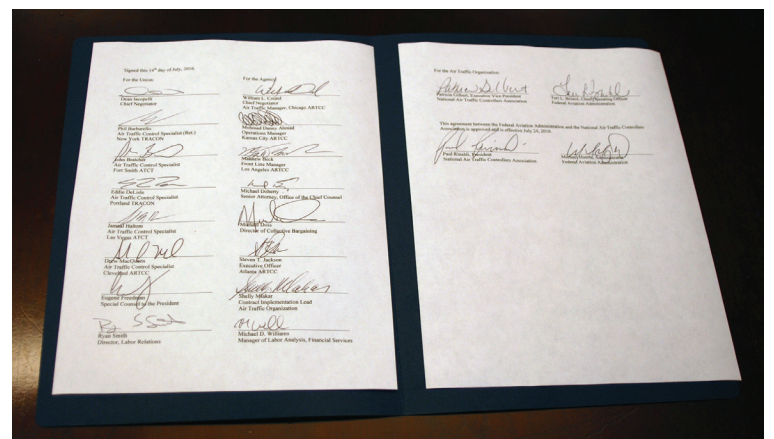 Signed this 14th day of July, 2016.
For the Union:
Dean Iacopelli
Chief Negotiator
Phil Barbarello
Air Traffic Control Specialist (Ret.)
New York TRACON
John Bratcher
Air Traffic Control Specialist
Fort Smith ATCT
Eddie DeLisle
Air Traffic Control Specialist
Portland TRACON
Jamaal Haltom
Air Traffic Control Specialist
Las Vegas ATCT
Drew MacQueen
Air Traffic Control Specialist
Cleveland ARTCC
Eugene Freedman
Special Counsel to the President
Ryan Smith
Director, Labor Relations
For the Agency:
William L.
Chief Negotiator
Air Traffic Manager, Chicago ARTCC
Operations Manager
Kansas City ARTCC
Matthew Beck
Front Line Manager
Los Angeles ARTCC
Michael Doherty
Senior Attorney, Office of the Chief Counsel
Michael Doss
Director of Collective Bargaining
Steven T. Jackson
Executive Officer
Atlanta ARTCC
Shelly
Contract Implementation Lead
Air Traffic Organization
Michael D. Williams
Manager of Labor Analysis, Financial Services
For the Air Traffic Organization:
Patricia Gilbert, Executive Vice President
National Air Traffic Controllers Association
Teri L. Bristol, Chief Operating Officer
Federal Aviation Administration
This agreement between the Federal Aviation Administration and the National Air Traffic Controllers
Association is approved and is effective July 24, 2016.
Paul Rinaldi, President
National Air Traffic Controllers Association
Michael Huerta, Administrator
Federal Aviation Administration